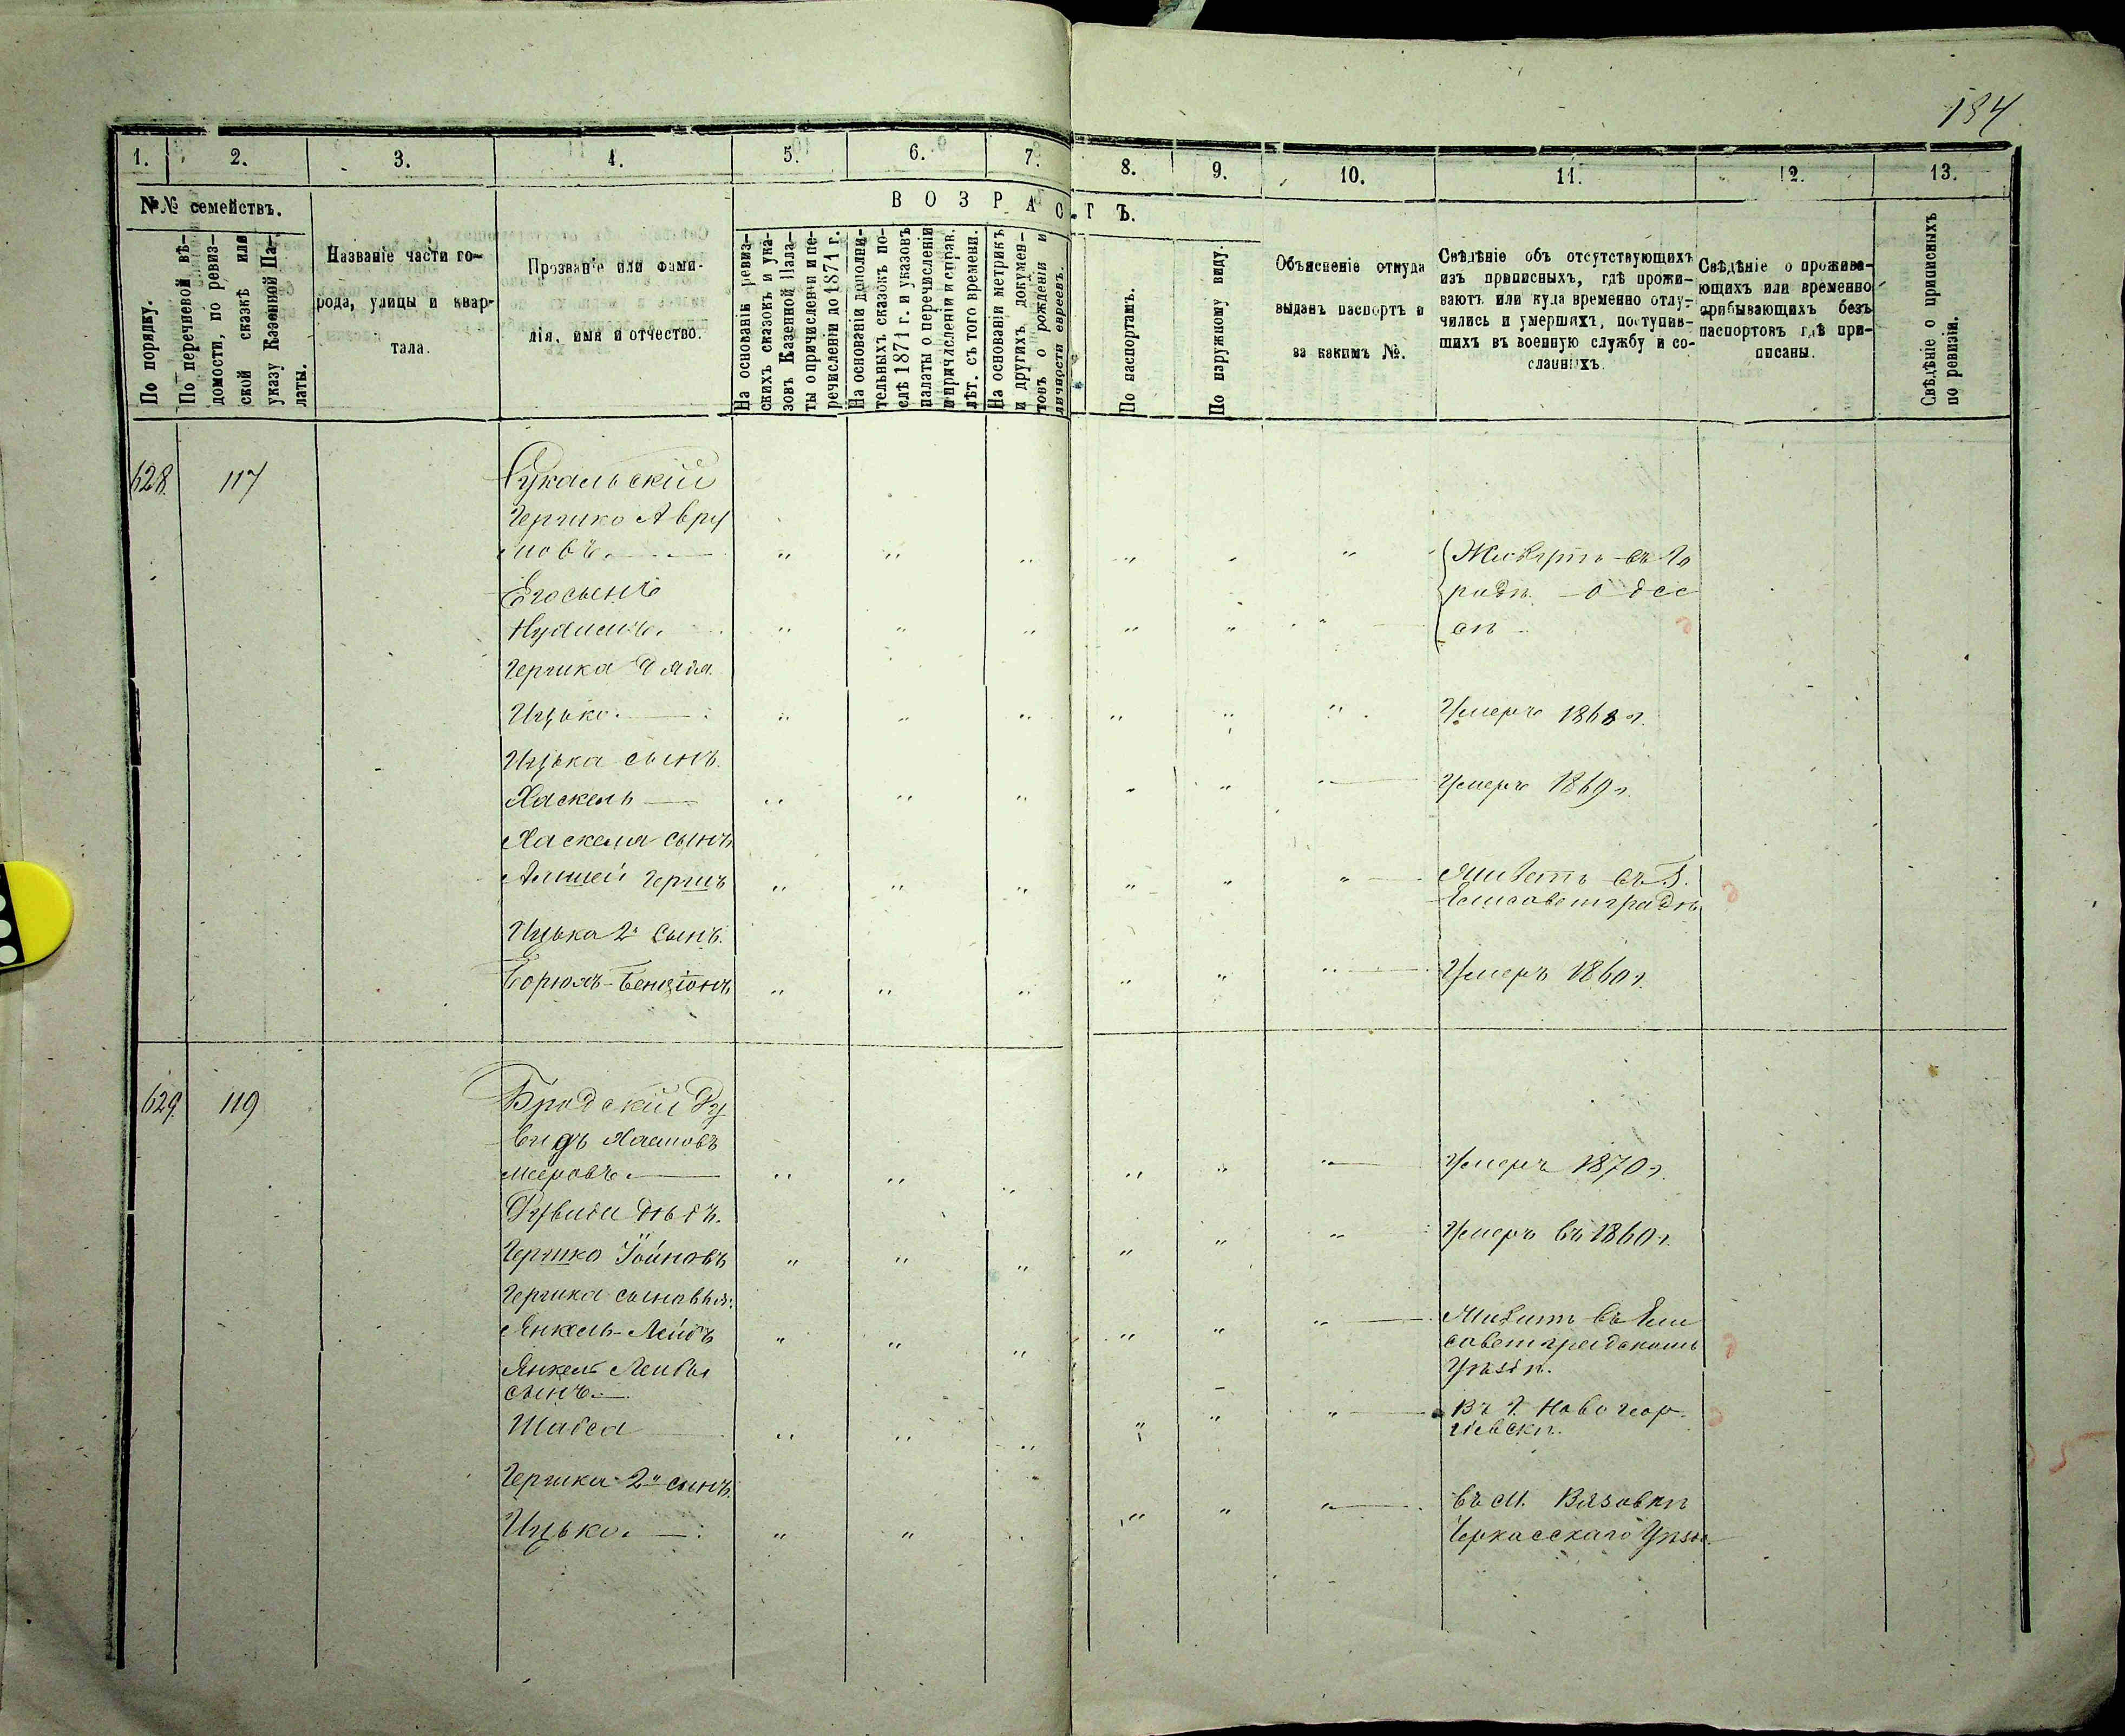 184
1. 2. 3. 4. 5. 6. 7. 8. 9. 10. 11. 12. 13.
№№ семействъ.
По порядку.
По перечневой вѣ-
домости, по ревиз-
ской сказкѣ или
указу Казенной Па-
латы.
Названіе части го-
рода, улицы и квар-
тала.
Прозваніе или фами-
лія, имя и отчество.
ВОЗРАСТЪ.
На основаніи ревиз-
скихъ сказокъ и ука-
зовъ Казенной Пала-
ты о причисленіи и пе-
речисленіи до 1871 г.
На основаніи дополни-
тельныхъ сказокъ по-
слѣ 1871 г. и указовъ
палаты о перечисленіи
и причисленіи и справ.
лѣт. съ того времени.
На основаніи метрикъ
и другихъ докумен-
товъ о рожденіи и
личности евреевъ.
По паспортамъ.
По наружному виду.
Объясненіе откуда
выданъ паспортъ и
за какимъ №.
Свѣдѣніе объ отсутствующихъ
изъ приписныхъ, гдѣ прожи-
ваютъ или куда временно отлу-
чились и умершихъ, поступив-
шихъ въ военную службу и со-
сланныхъ.
Свѣдѣніе о прожива-
ющихъ или временно
прибывающихъ безъ
паспортовъ гдѣ при-
писаны.
Свѣдѣніе о приписныхъ
по ревизіи.
628. 117
Гершко Авру
мовъ.
Живутъ въ го
родѣ Одес
сѣ
Его сынъ
Гершка дядя
Ицько. Умеръ 1868 г.
Ицька сынъ
Хаскель Умеръ 1869 г.
Хаскеля сынъ
Гершъ Живетъ въ Г.
Елисаветградѣ
Ицька 2й сынъ.
Борюхъ-Бенціонъ Умеръ 1860 г.
629. 119
Бродскій Ру
видъ Хаимовъ
мееровъ. Умеръ 1870 г.
Рувида дѣдъ.
Гершко Іойновъ Умеръ въ 1860 г.
Гершка сыновья:
Янкель-Лейбъ Живитъ въ Ели
саветградскомъ
Уѣздѣ.
Янкель Лейбы
сынъ.
Въ Г. Новогеор
гіевскѣ.
Шабса
Гершка 2й сынъ.
Ицько. въ М. Вязовкѣ
Черкасскаго Уѣзда